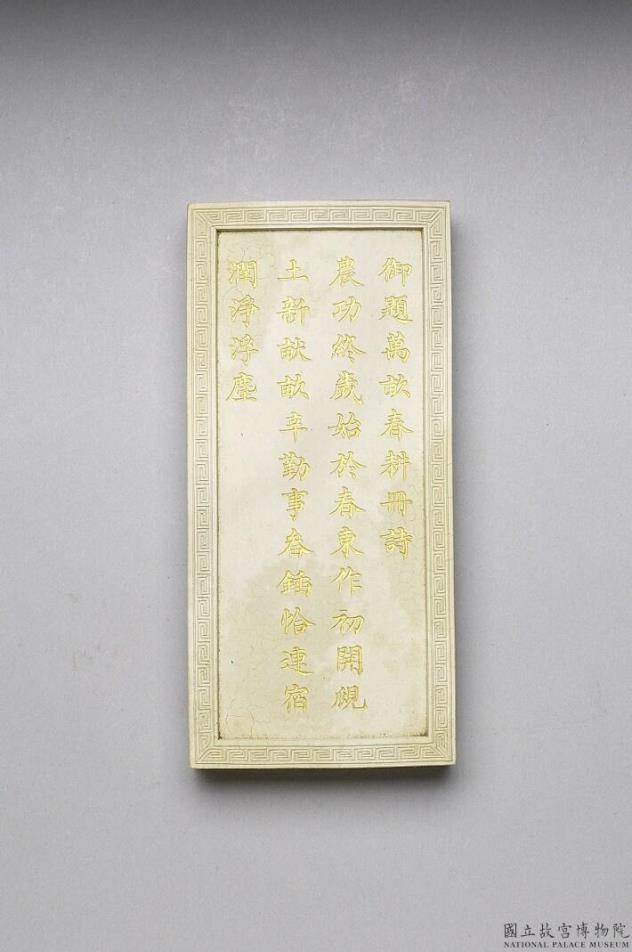 御題萬畝春耕冊詩
農功終歲始於春東作初開覛
土新畎畝辛勤事畚鍤恰連宿
潤淨浮塵
國立故宮博物院
NATIONAL PALACE MUSEUM